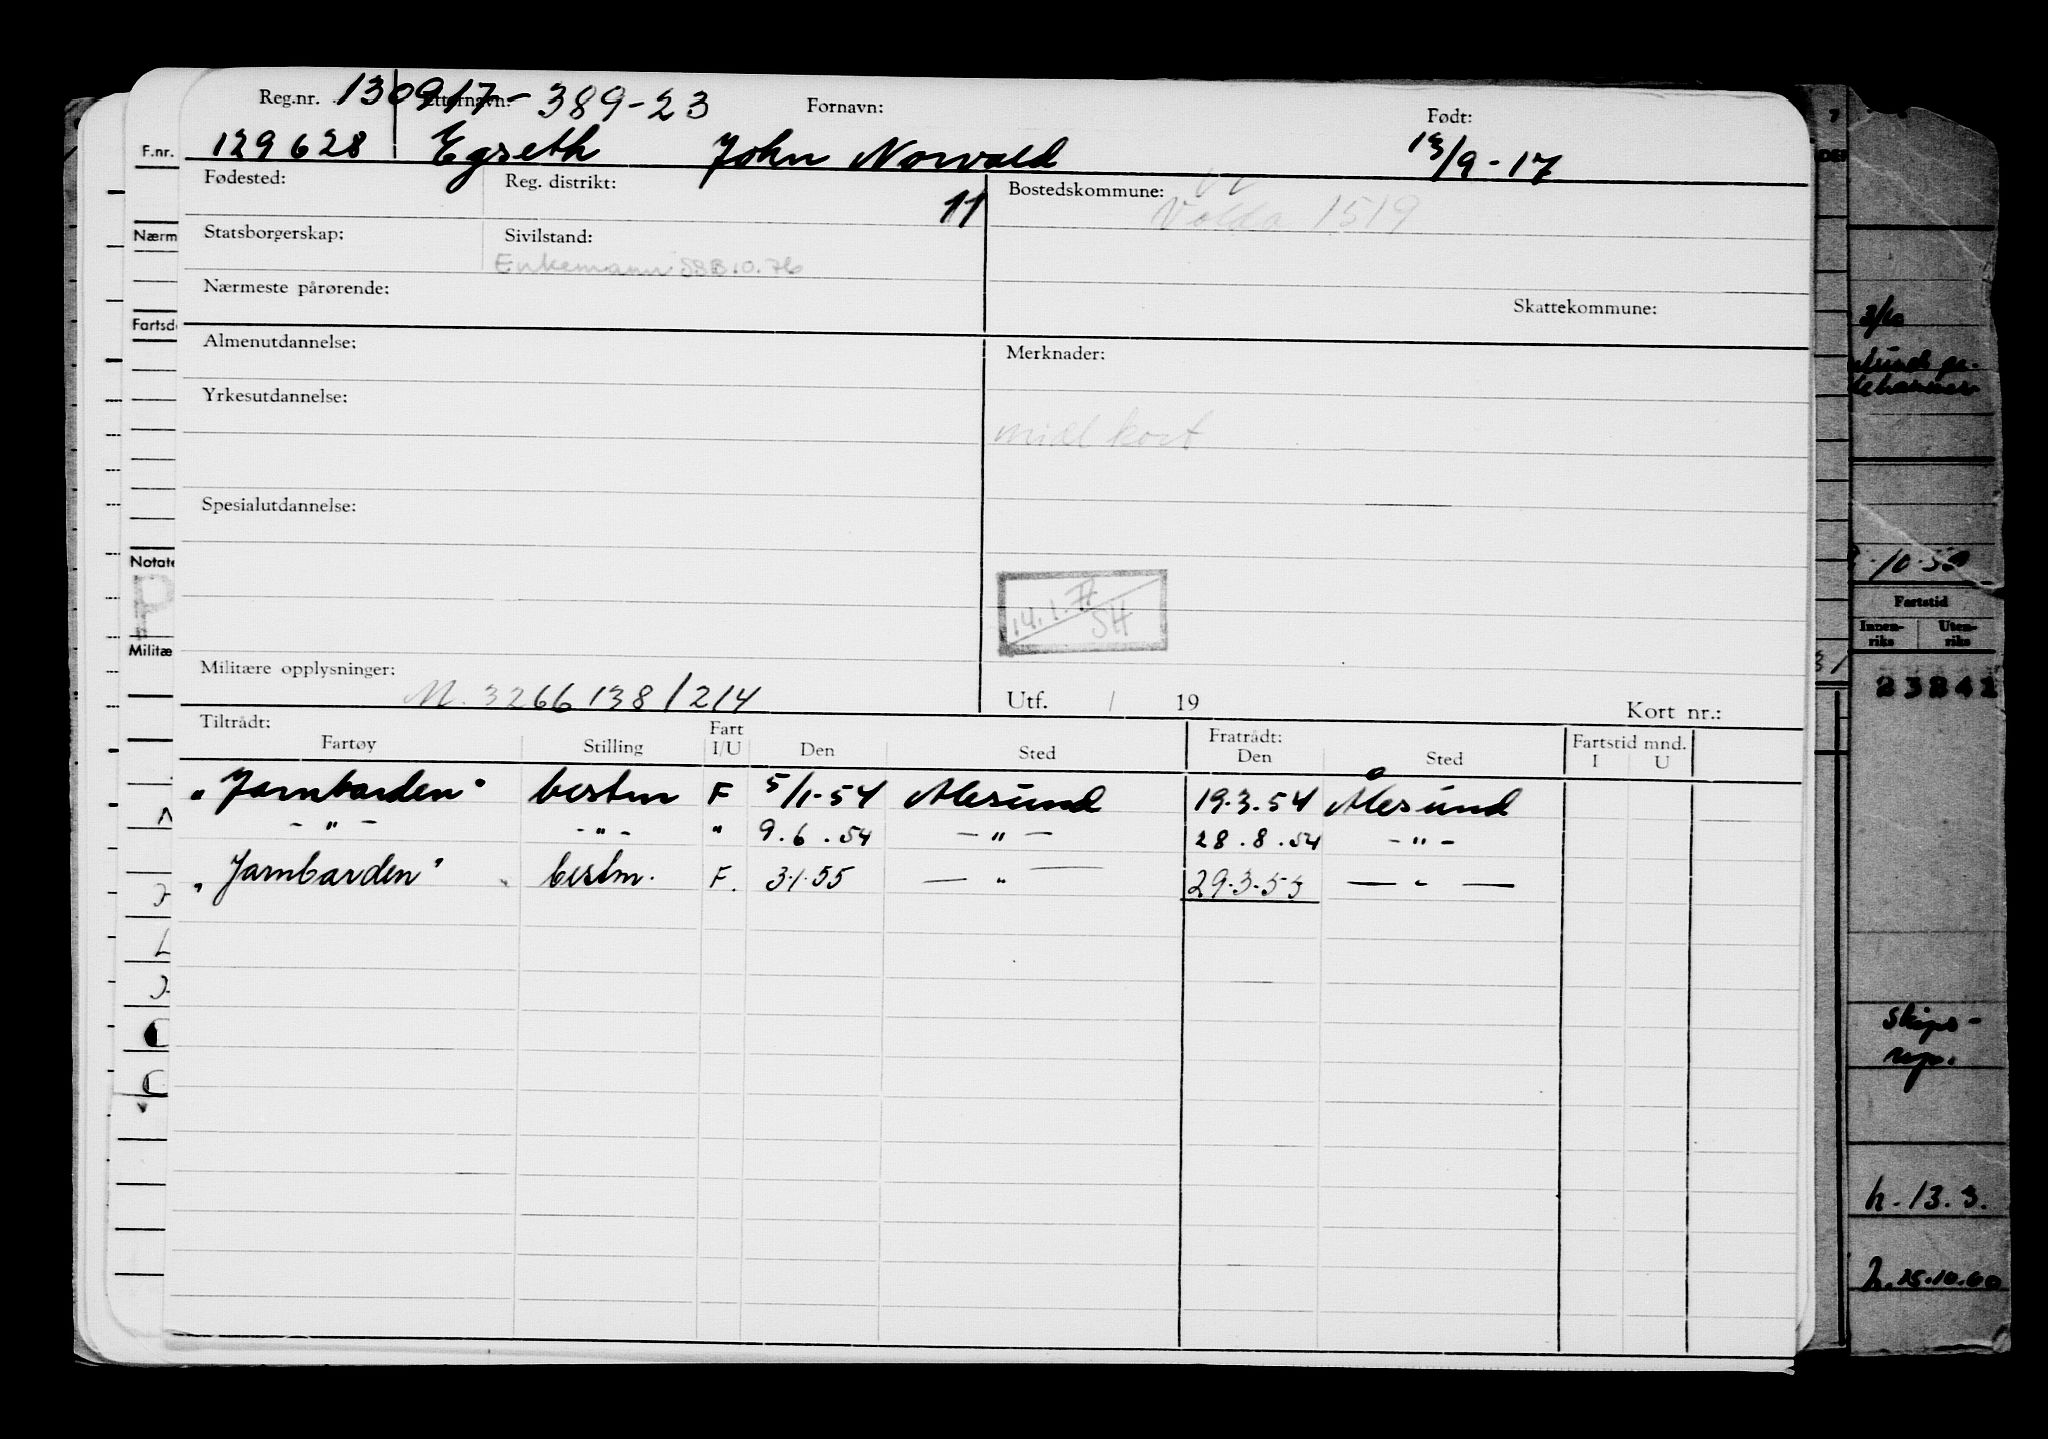 Reg.nr. 130917-389-23 Etternavn: Fornavn: Født:
F.nr. 129628 Egseth John Norvald 13/9-17
Fødested: Reg. distrikt: 11 Bostedskommune: Volda 1519
Nærm Statsborgerskap: Sivilstand:
Enkemann SSB.10.76
Nærmeste pårørende: Skattekommune:
3/10
Fartsd Almenutdannelse: Merknader:
Yrkesutdannelse:
midl kort
Spesialutdannelse:
Notate
10.59
Fartstid
Innen-riks Uten-riks
14.1.77 SH
Militæ Militære opplysninger:
M. 3266138/214 Utf. / 19 Kort nr.:
23242
Tiltrådt: Fratrådt: Fartstid mnd.
Fartøy Stilling Fart I/U Den Sted Den Sted I U
"Jarnbarden" bestm F 5/1-54 Alesund 19.3.54 Ålesund
-"- -"- " 9.6.54 -"- 28.8.54 -"-
"Jarnbarden" bestm. F. 3.1.55 -"- 29.3.55 -"-
Skips-
rep.
h. 13.3.
h. 15.10.60